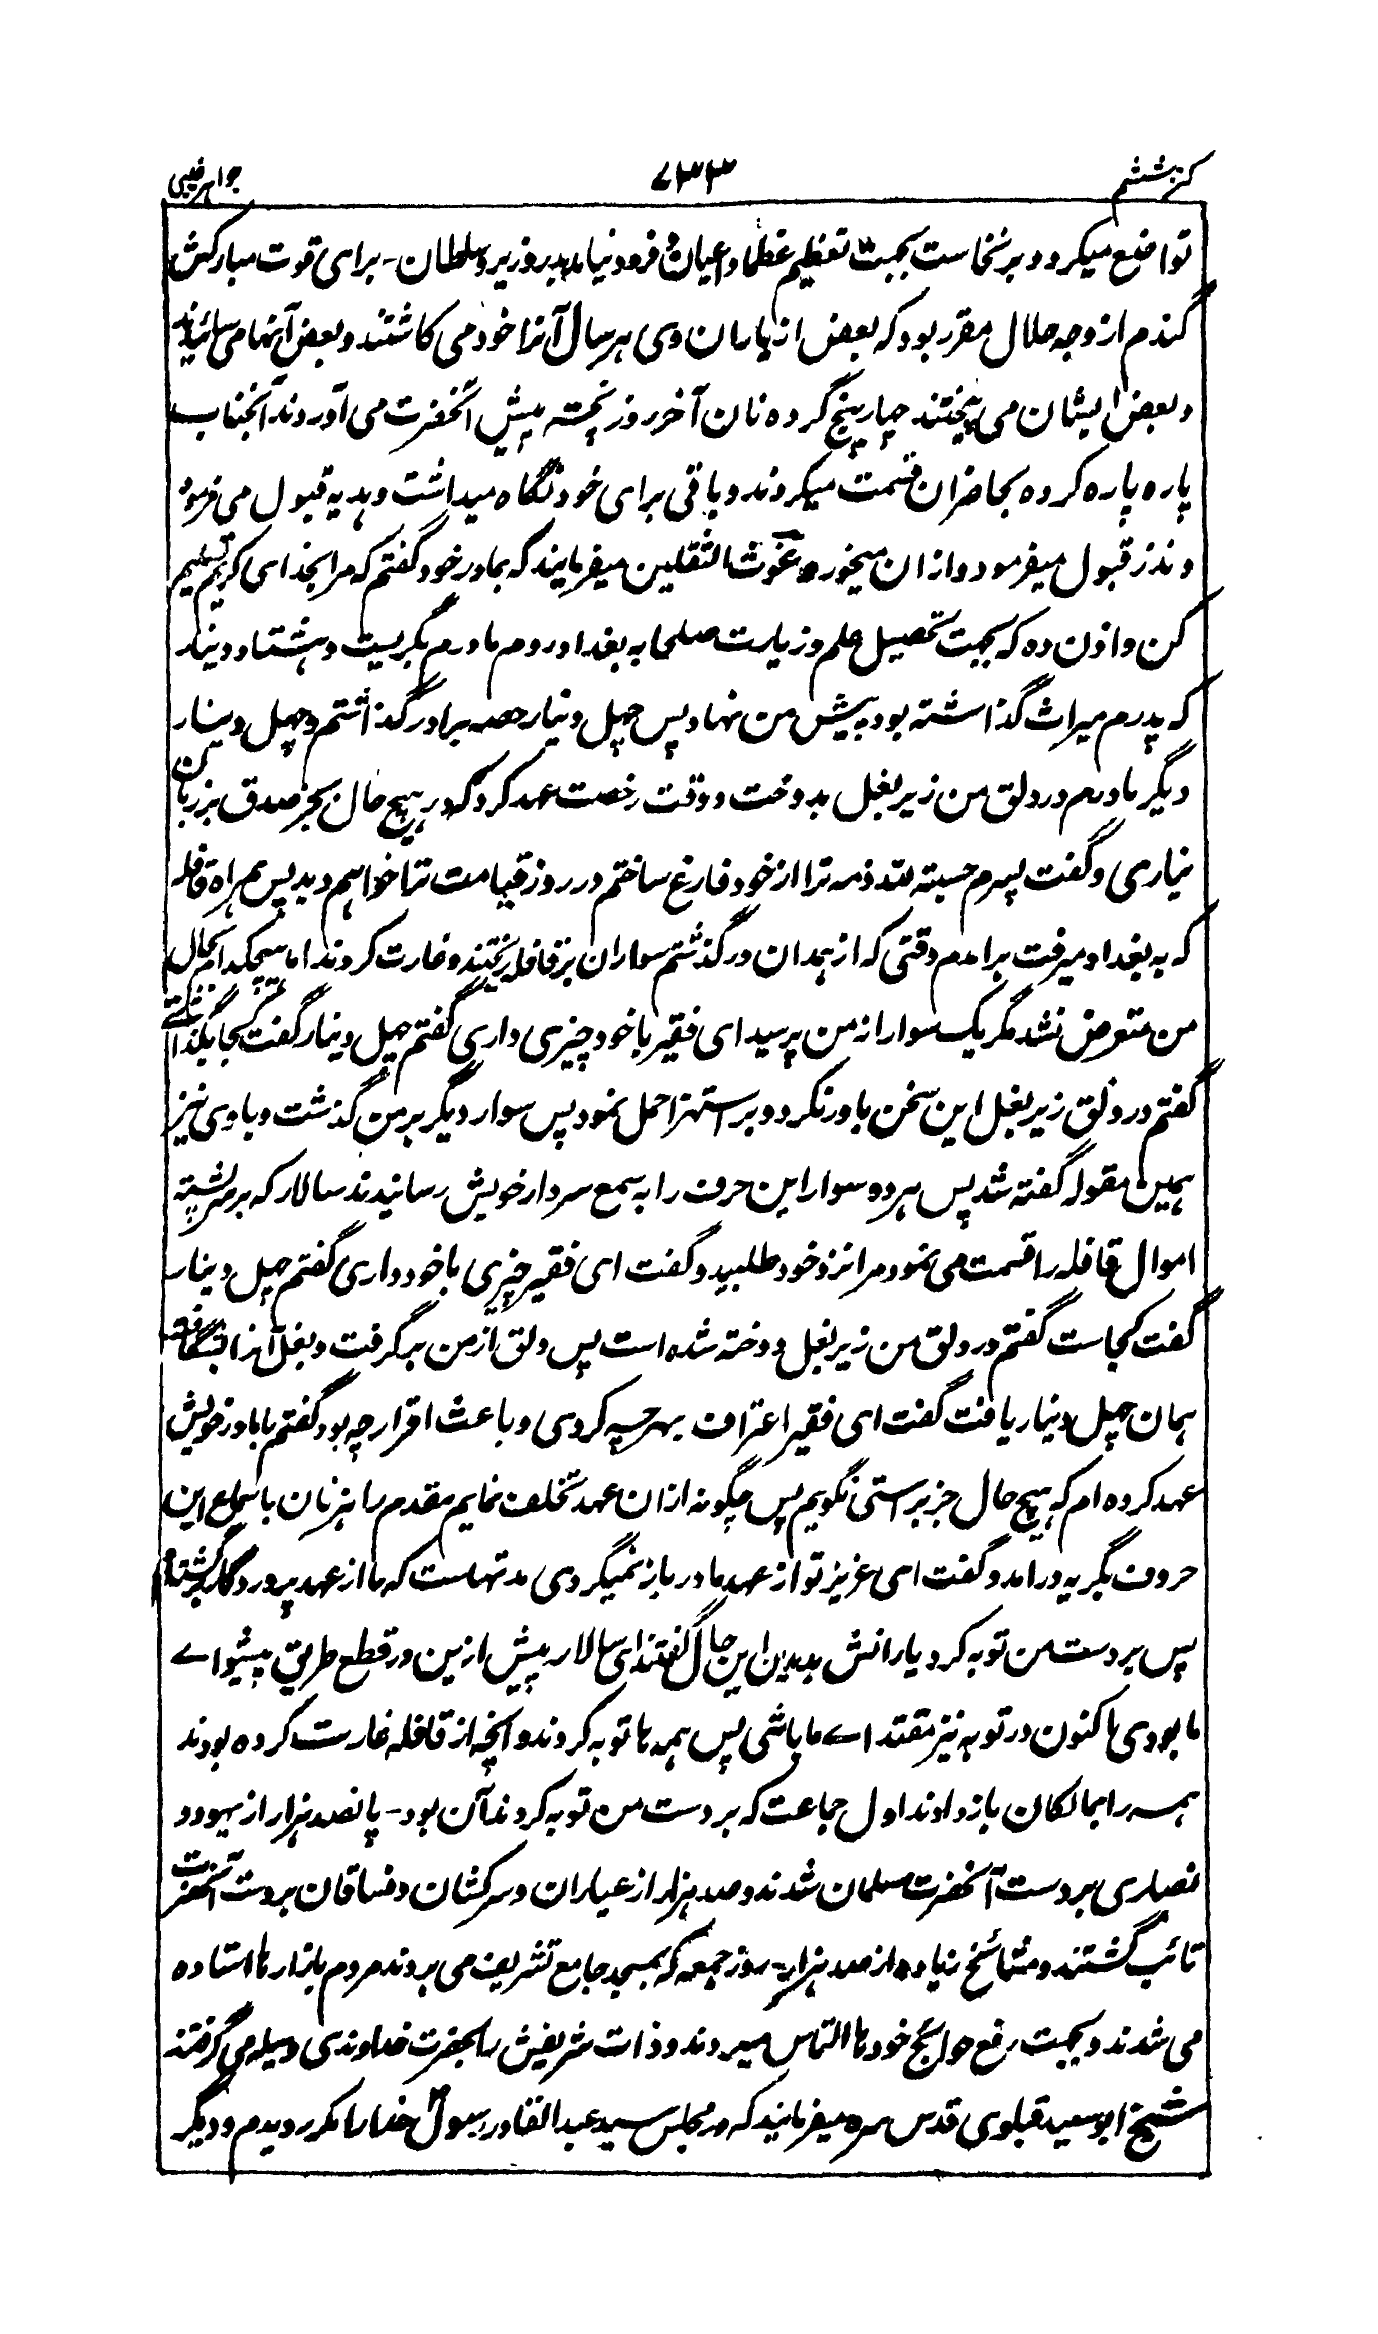 کنز ششم ۷۳۳ جواهر غیبی
تواضع میکرد و برنخاست بجهت تعظیم عظما و اعیان و فرود نیامد بدر وزیر و سلطان - برای قوت مبارکش
گندم از وجه حلال مقرر بود که بعض از یاران وی هر سال آنرا خود می کاشتند و بعض آنها می سائیدند
و بعض ایشان می پختند چهار پنج گرده نان آخر روز پخته پیش آنحضرت می آوردند آنجناب
پاره پاره کرده بحاضران قسمت میکردند و باقی برای خود نگاه میداشت و هدیه قبول می فرمود
و نذر قبول میفرمود و ازان میخورد غوث الثقلین میفرمایند که بمادر خود گفتم که مرا بخدای کریم تسلیم
کن و اذن ده که بجهت تحصیل علم و زیارت صلحا به بغداد روم مادرم بگریست و هشتاد دینار
که پدرم میراث گذاشته بود پیش من نهاد پس چهل دینار حصه برادر گذاشتم و چهل دینار
دیگر مادرم در دلق من زیر بغل بدوخت و وقت رخصت عهد کرد که در هیچ حال بجز صدق بزبان
نیاری و گفت پسرم حسبة لله ذمه ترا از خود فارغ ساختم در روز قیامت ترا خواهم دید پس همراه قافله
که به بغداد میرفت برامدم وقتی که از همدان درگذشتم سواران بر قافله ریختند و غارت کردند اما هیچکدام بحال
من متعرض نشد مگر یک سوار از من پرسید ای فقیر با خود چیزی داری گفتم چهل دینار گفت کجا بگذاشتے
گفتم در دلق زیر بغل این سخن باور نکرد و بر استهزا حمل نمود پس سوار دیگر بر من گذشت و با وی نیز
همین مقوله گفته شد پس هر دو سوار این حرف را به سمع سردار خویش رسانیدند سالار که بر سر پشته
اموال قافله را قسمت می نمود مرا نزد خود طلبید و گفت ای فقیر چیزی با خود داری گفتم چهل دینار
گفت کجاست گفتم در دلق من زیر بغل دوخته شده است پس دلق از من برگرفت و بغل آنرا بشگافت
همان چهل دینار یافت گفت ای فقیر اعتراف بهرچه کردی و باعث اقرار چه بود گفتم با مادر خویش
عهد کرده ام که هیچ حال جز براستی نگویم پس چگونه ازان عهد تخلف نمایم مقدم راهزنان باستماع این
حروف بگریه درامد و گفت ای عزیز تو از عهد مادر باز نمیگردی مدتهاست که ما از عهد پروردگار برگشته ایم
پس بر دست من توبه کرد یارانش بدیدن این حال گفتند ای سالار پیش ازین در قطع طریق پیشواے
ما بودی اکنون در توبه نیز مقتداے ما باشی پس همه ها توبه کردند و آنچه از قافله غارت کرده بودند
همه را بمالکان باز دادند اول جماعت که بر دست من توبه کردند آن بود - پانصد هزار از یهود و
نصاری بر دست آنحضرت مسلمان شدند و صد هزار از عیاران و سرکشان و فساقان بر دست آنحضرت
تائب گشتند و مشائخ زیاده از صد هزار - روز جمعه که بمسجد جامع تشریف می بردند مردم بازارها استاده
می شدند و بجهت رفع حوائج خودها التماس میبردند و ذات شریفش را بحضرت خداوندی وسیله می گرفتند
شیخ ابوسعید قیلوی قدس سره میفرمایند که در مجلس سید عبدالقادر رسول خدا را مکرر دیدم و دیگر